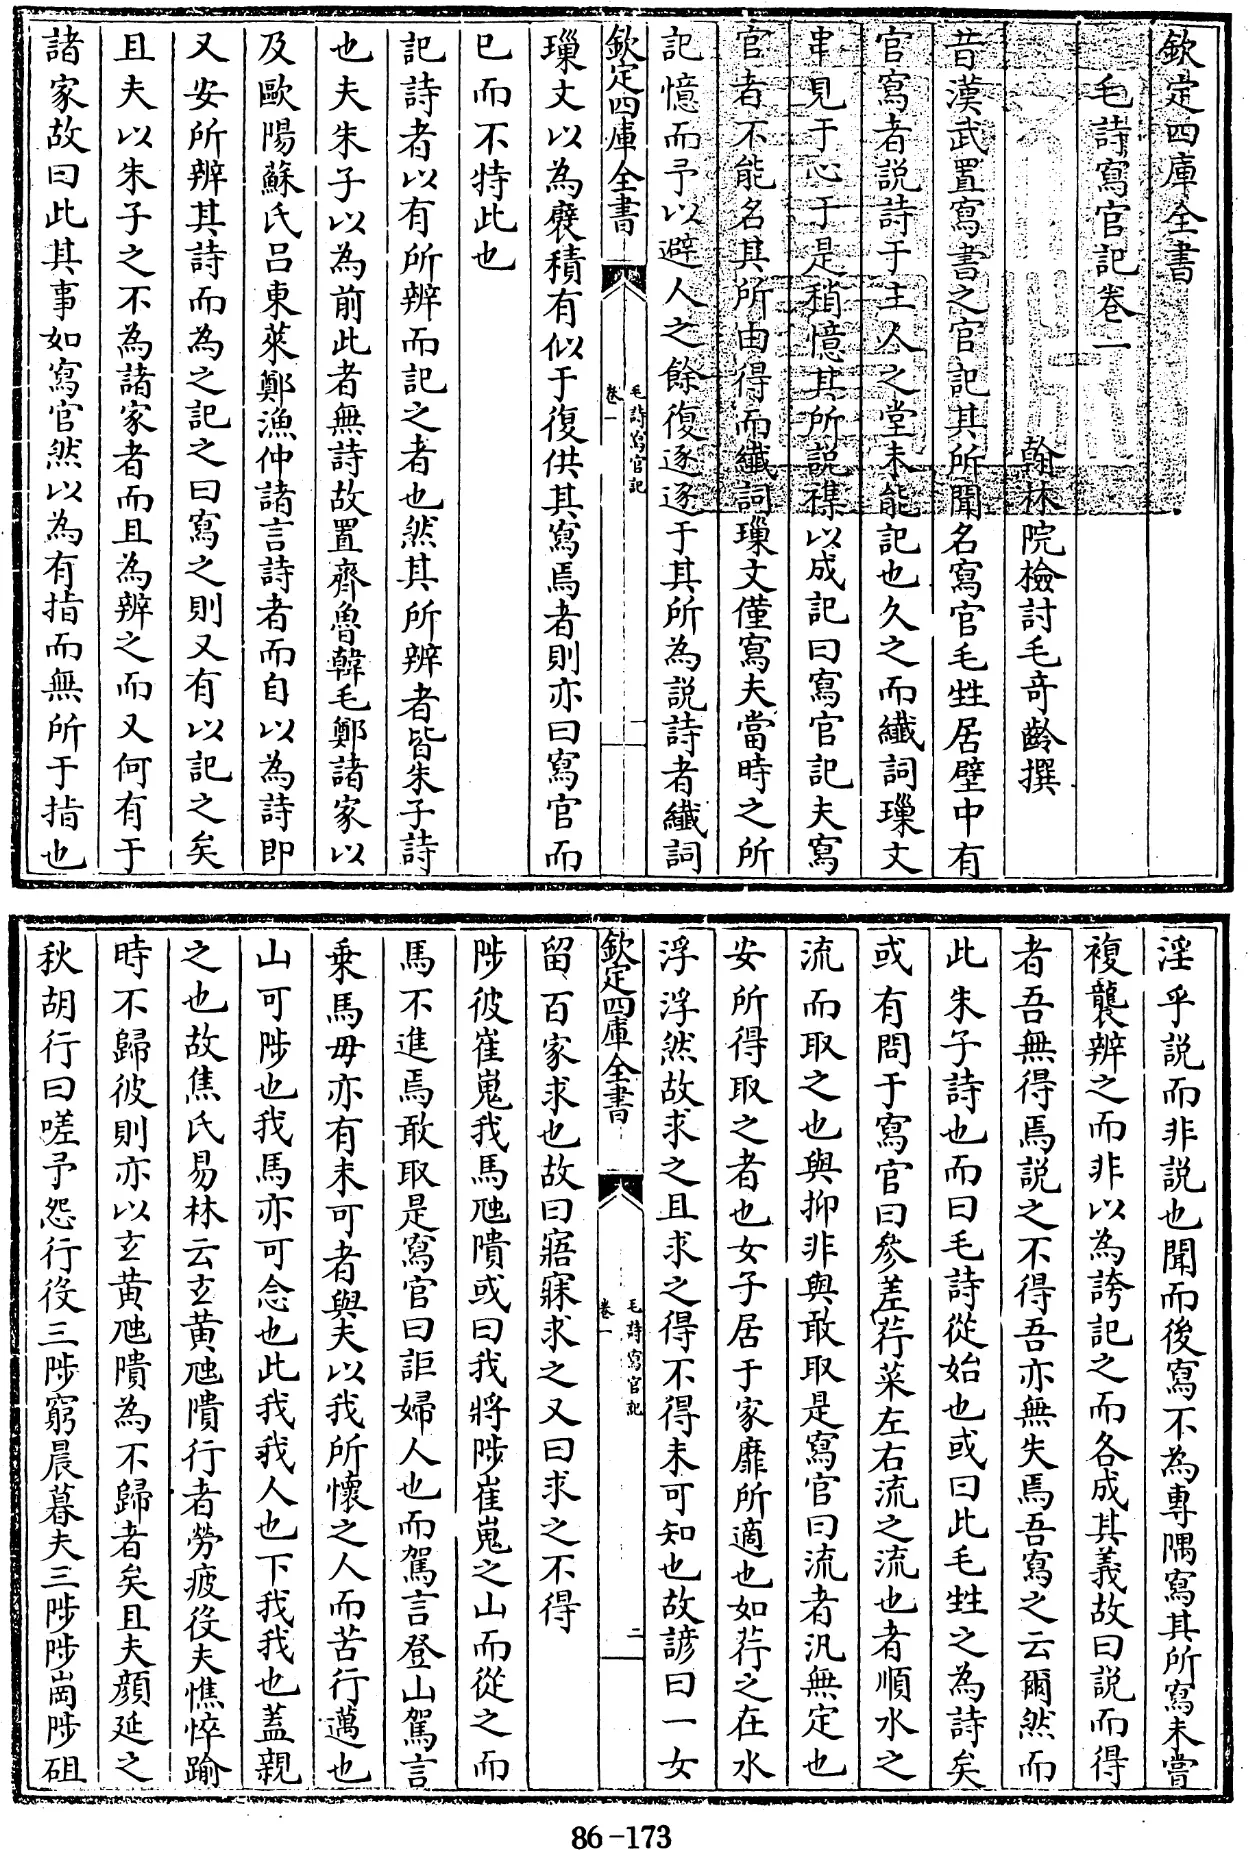 欽定四庫全書
毛詩寫官記卷一
翰林院檢討毛奇齡撰
昔漢武置寫書之官記其所聞名寫官毛甡居壁中有
官寫者説詩于主人之堂未能記也久之而纖詞璅文
串見于心于是稍憶其所説襍以成記曰寫官記夫寫
官者不能名其所由得而纖詞璅文僅寫夫當時之所
記憶而予以避人之餘復逐逐于其所為説詩者纖詞
欽定四庫全書
毛詩寫官記
卷一
一
璅文以為襞積有似于復供其寫焉者則亦曰寫官而
已而不特此也
記詩者以有所辨而記之者也然其所辨者皆朱子詩
也夫朱子以為前此者無詩故置齊魯韓毛鄭諸家以
及歐陽蘇氏呂東萊鄭漁仲諸言詩者而自以為詩即
又安所辨其詩而為之記之曰寫之則又有以記之矣
且夫以朱子之不為諸家者而且為辨之而又何有于
諸家故曰此其事如寫官然以為有指而無所于指也
淫乎説而非説也聞而後寫不為專隅寫其所寫未嘗
複襲辨之而非以為誇記之而各成其義故曰説而得
者吾無得焉説之不得吾亦無失焉吾寫之云爾然而
此朱子詩也而曰毛詩從始也或曰此毛甡之為詩矣
或有問于寫官曰參差荇菜左右流之流也者順水之
流而取之也與抑非與敢取是寫官曰流者汎無定也
安所得取之者也女子居于家靡所適也如荇之在水
浮浮然故求之且求之得不得未可知也故諺曰一女
欽定四庫全書
毛詩寫官記
卷一
二
留百家求也故曰寤寐求之又曰求之不得
陟彼崔嵬我馬虺隤或曰我將陟崔嵬之山而從之而
馬不進焉敢取是寫官曰詎婦人也而駕言登山駕言
乗馬毋亦有未可者與夫以我所懷之人而苦行邁也
山可陟也我馬亦可念也此我我人也下我我也蓋親
之也故焦氏易林云玄黄虺隤行者勞疲役夫憔悴踰
時不歸彼則亦以玄黄虺隤為不歸者矣且夫顔延之
秋胡行曰嗟予怨行役三陟窮晨暮夫三陟陟崗陟砠
86-173